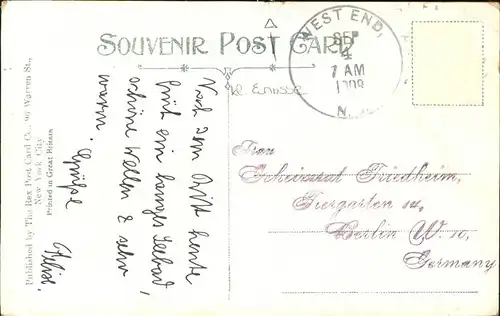 SOUVENIR POST CARD
WEST END,
SEP
4
7 AM
1908
N.J.
Nach dem Drift heute
früh ein langes Seebad,
schöne Wellen & sehr
warm. Grüße
Frau
Geheimrat Friedheim,
Tiergarten
Berlin W. 10,
Germany
Published by The Rex Post Card Co., 90 Warren St.,
New York City
Printed in Great Britain